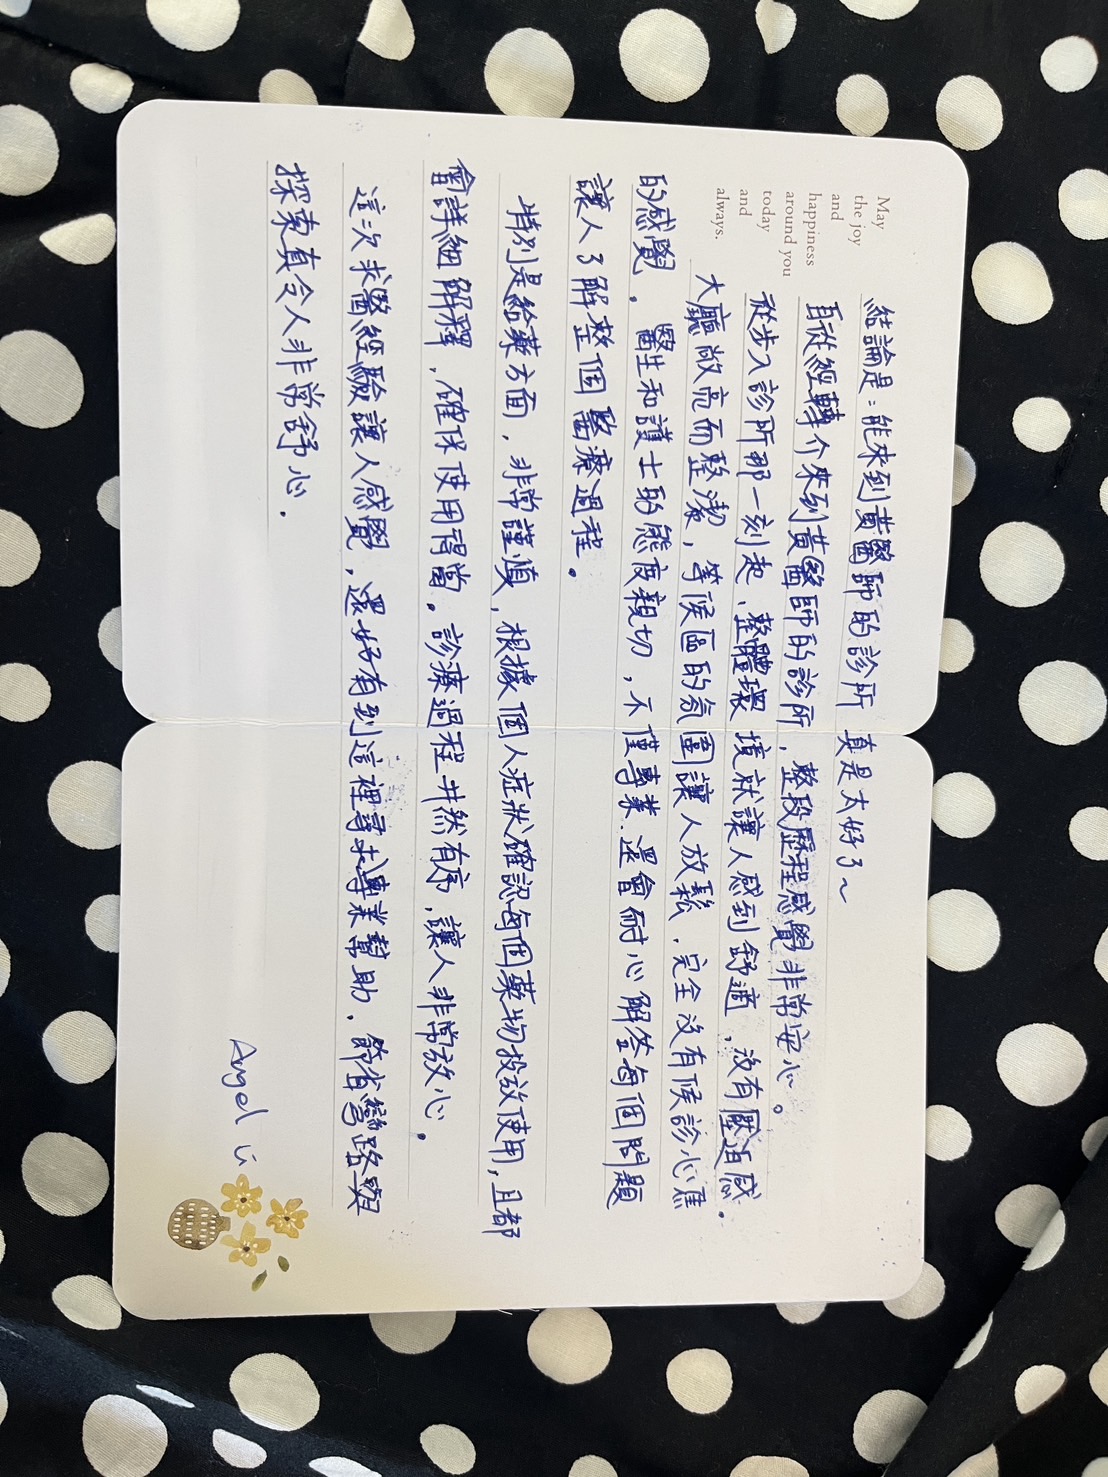 May
the joy
and
happiness
around you
today
and
always.
結論是：能來到黃醫師的診所 真是太好了～
自從經轉介來到黃醫師的診所，整段歷程感覺非常安心。
從步入診所那一刻起，整體環境就讓人感到舒適，沒有壓迫感。
大廳敞亮而整潔，等候區的氛圍讓人放鬆，完全沒有候診心焦
的感覺。醫生和護士的態度親切，不僅專業．還會耐心解答每個問題
讓人了解整個醫療過程。
特別是給藥方面，非常謹慎，根據個人症狀確認每個藥物投放使用，且都
會詳細解釋，確保使用得當。診療過程井然有序，讓人非常放心。
這次求醫經驗讓人感覺，還好有到這裡尋求專業幫助．節省彎路與
探索真令人非常舒心．
Angel Li